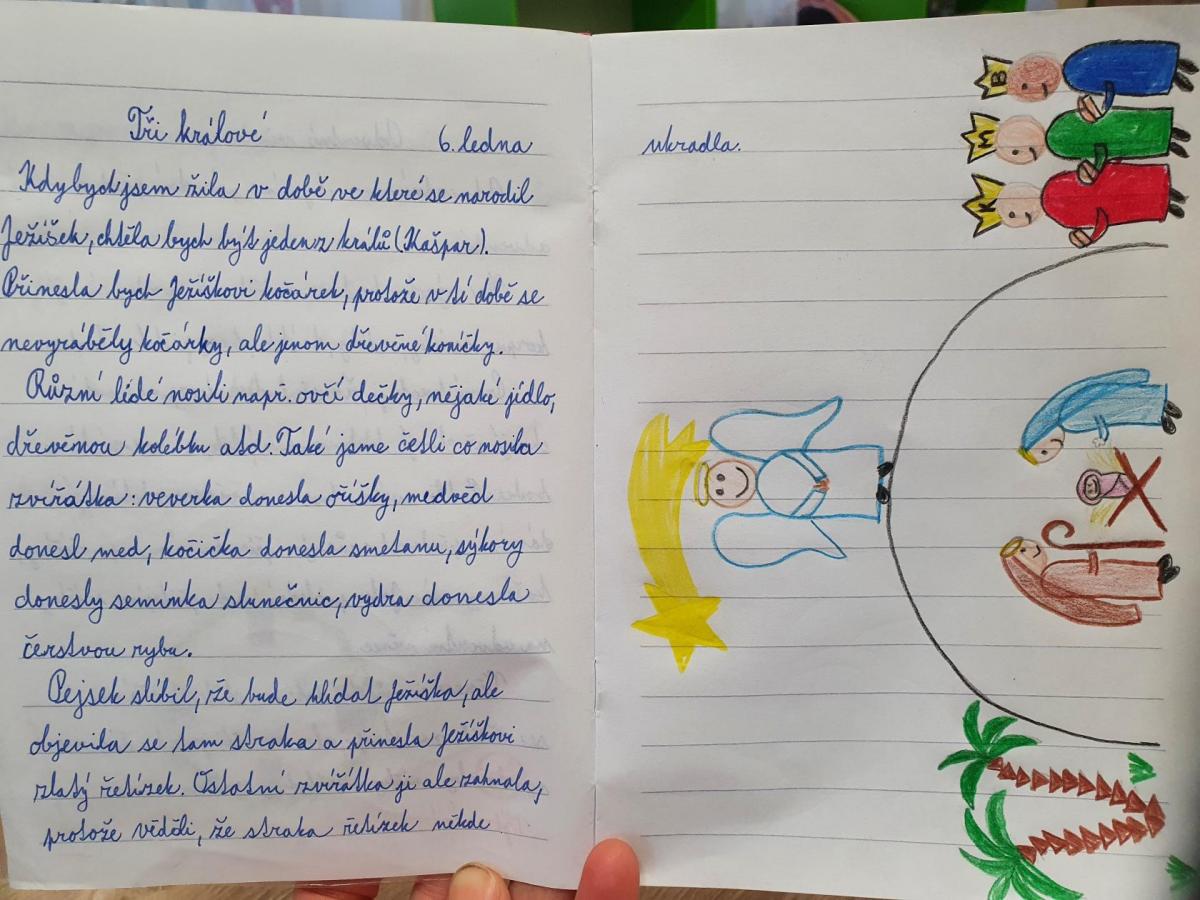 Tři králové 6. ledna
Kdybych jsem žila v době ve které se narodil
Ježíšek, chtěla bych být jeden z králů (Kašpar).
Přinesla bych Ježíškovi kočárek, protože v tí době se
nevyráběly kočárky, ale jenom dřevěné koníčky.
Různí lidé nosili např. ovčí dečky, nějaké jídlo,
dřevěnou kolébku atd. Také jsme četli co nosila
zvířátka: veverka donesla oříšky, medvěd
donesl med, kočička donesla smetanu, sýkory
donesly semínka slunečnic, vydra donesla
čerstvou rybu.
Pejsek slíbil, že bude hlídat Ježíška, ale
objevila se tam straka a přinesla Ježíškovi
zlatý řetízek. Ostatní zvířátka ji ale zahnala,
protože věděli, že straka řetízek někde
ukradla.
B
M
K